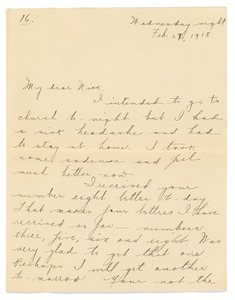 16.
Wednesday night
Feb. 27, 1918.
My dear Nick,
I intended to go to
church to-night but I had
a sick headache and had
to stay at home. I took
some and feel
much better now.
I received your
number eight letter to-day
that makes four letters I have
received so far - numbers
three, five, six and eight. Was
very glad to get that one
Perhaps I will get another
to-morrow. your not the